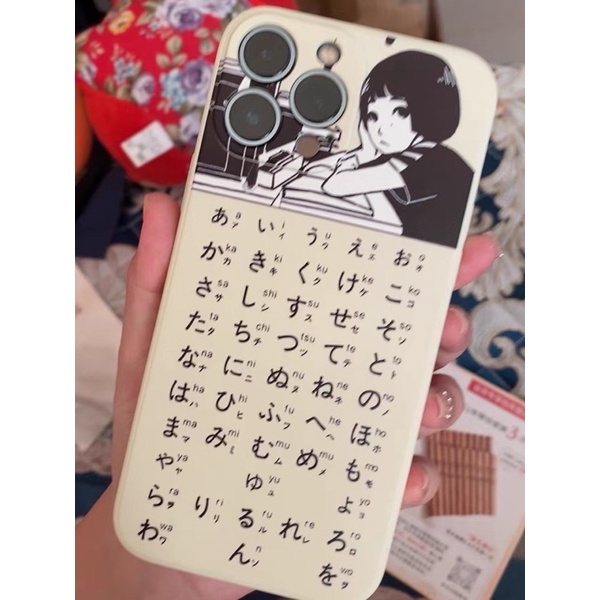 あ a ア い i イ う u ウ え e エ お o オ
か ka カ き ki キ く ku ク け ke ケ こ ko コ
さ sa サ し shi シ す su ス せ se セ そ so ソ
た ta タ ち chi チ つ tsu ツ て te テ と to ト
な na ナ に ni ニ ぬ nu ヌ ね ne ネ の no ノ
は ha ハ ひ hi ヒ ふ fu フ へ he ヘ ほ ho ホ
ま ma マ み mi ミ む mu ム め me メ も mo モ
や ya ヤ ゆ yu ユ よ yo ヨ
ら ra ラ り ri リ る ru ル れ re レ ろ ro ロ
わ wa ワ ん n ン を wo ヲ
3